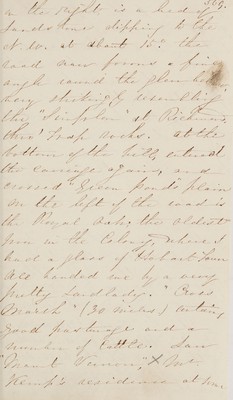 on the right is a bed of
sandstone dipping to the
N.W. at about 15°. the
road now forms a fine
angle round the glen
very strikingly resembling
the "Simplon" at
thro' Trap rocks. at the
bottom of the hill, entered
the carriage again, and
crossed "Green Ponds plain
on the left of the road is
the Royal Oak, the oldest
Inn in the Colony, where I
had a glass of Hobart Town
Ale handed me by a very
pretty landlady. "Cross
Marsh" (30 miles) contains
good pasturage and a
number of Cattle. Saw
"Mount Vernon," Mr.
Kemp's residence at